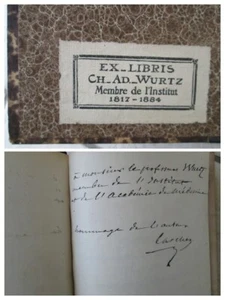 EX-LIBRIS
CH-AD-WURTZ
Membre de l'Institut
1817-1884
à monsieur le professeur Wurtz
membre de l'Institut
et de l'Académie de médecine
hommage de l'auteur